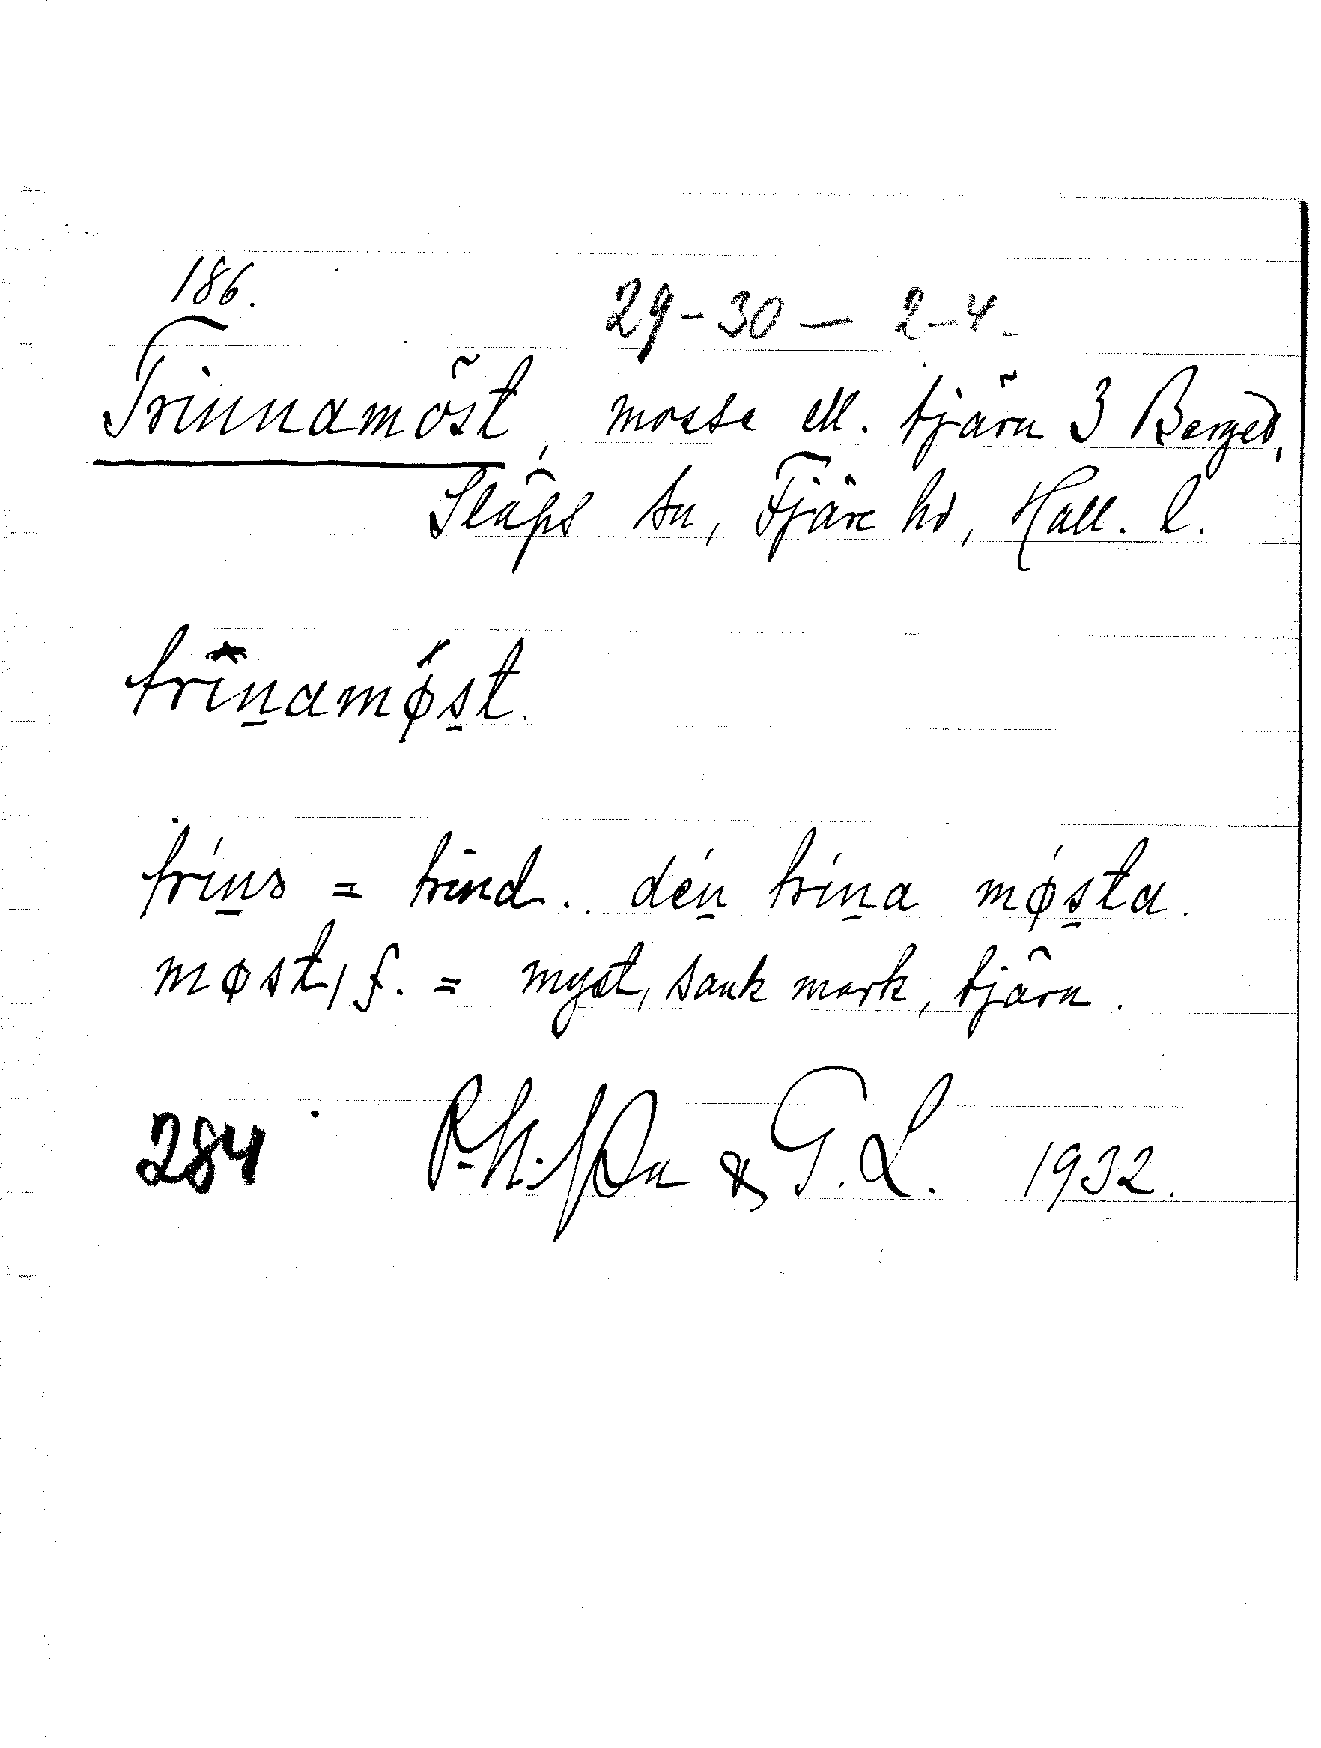 186.
29-30 — 2-4.
Trinnamöst, mosse ell. tjärn 3 Berged,
Släps sn, Fjäre hd, Hall. l.
trin̲amǿs̲t.
trín̲ɷ = trind. dén̲ trín̲a mǿs̲ta.
møst, f. = myst, sank mark, tjärn.
284
& G. L. 1932.